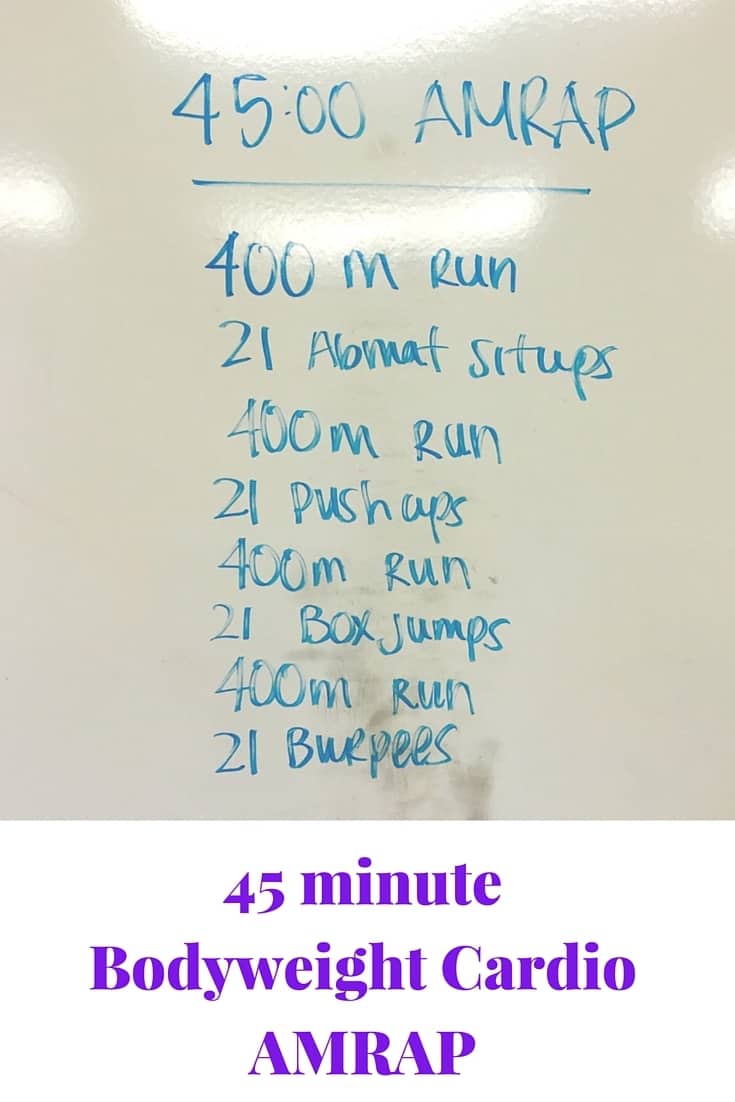 45:00 AMRAP
400 m Run
21 Abmat Situps
400m Run
21 Push ups
400m Run
21 Box Jumps
400m Run
21 Burpees
45 minute
Bodyweight Cardio
AMRAP